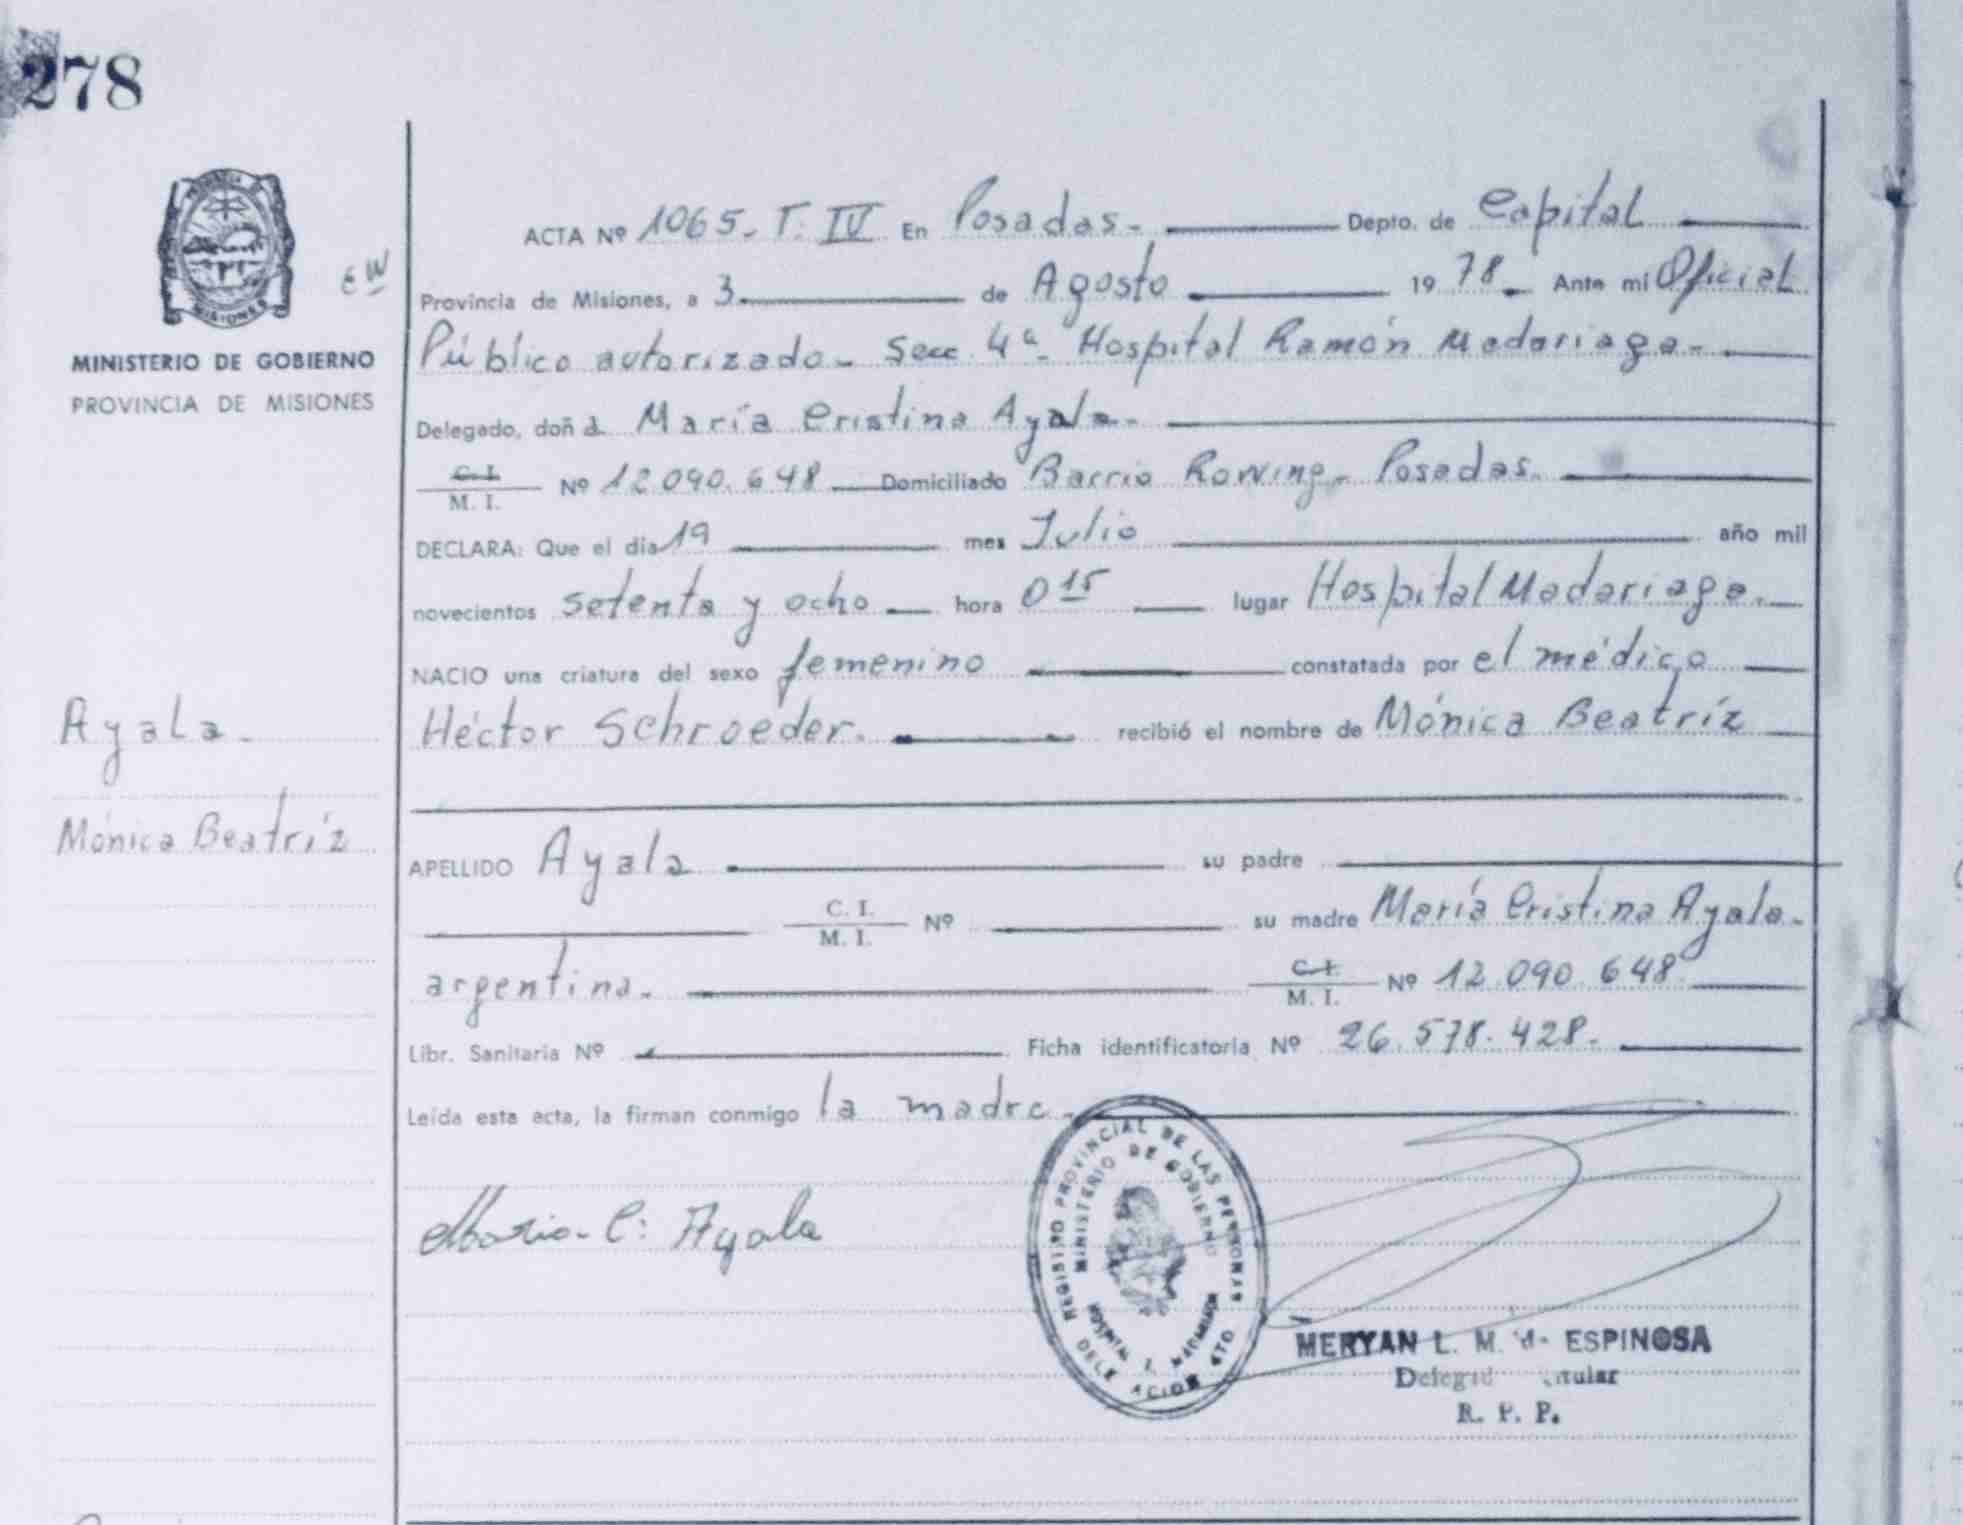 278
PROVINCIA DE
MISIONES
MINISTERIO DE GOBIERNO
PROVINCIA DE MISIONES
ACTA Nº 1065. T. IV En Posadas. Depto. de Capital
Provincia de Misiones, a 3 de Agosto 1978 Ante mi Oficial
Público autorizado. Secc. 4ª Hospital Ramón Madariaga.
Delegado, doña María Cristina Ayala.
C. I.
M. I. Nº 12.090.648 Domiciliado Barrio Rowing. Posadas.
DECLARA: Que el día 19 mes Julio año mil
novecientos setenta y ocho hora 0 15 lugar Hospital Madariaga.
NACIO una criatura del sexo femenino constatada por el médico
Héctor Schroeder. recibió el nombre de Mónica Beatríz
Ayala.
Mónica Beatríz
APELLIDO Ayala su padre
C. I.
M. I. Nº su madre María Cristina Ayala.
argentina. C. I.
M. I. Nº 12.090.648
Libr. Sanitaria Nº Ficha identificatoria Nº 26.578.428.
Leída esta acta, la firman conmigo la madre.
María C. Ayala
REGISTRO PROVINCIAL DE LAS PERSONAS
MINISTERIO DE GOBIERNO
HOSPITAL R. MADARIAGA
MERYAN L. M. de ESPINOSA
R. P. P.